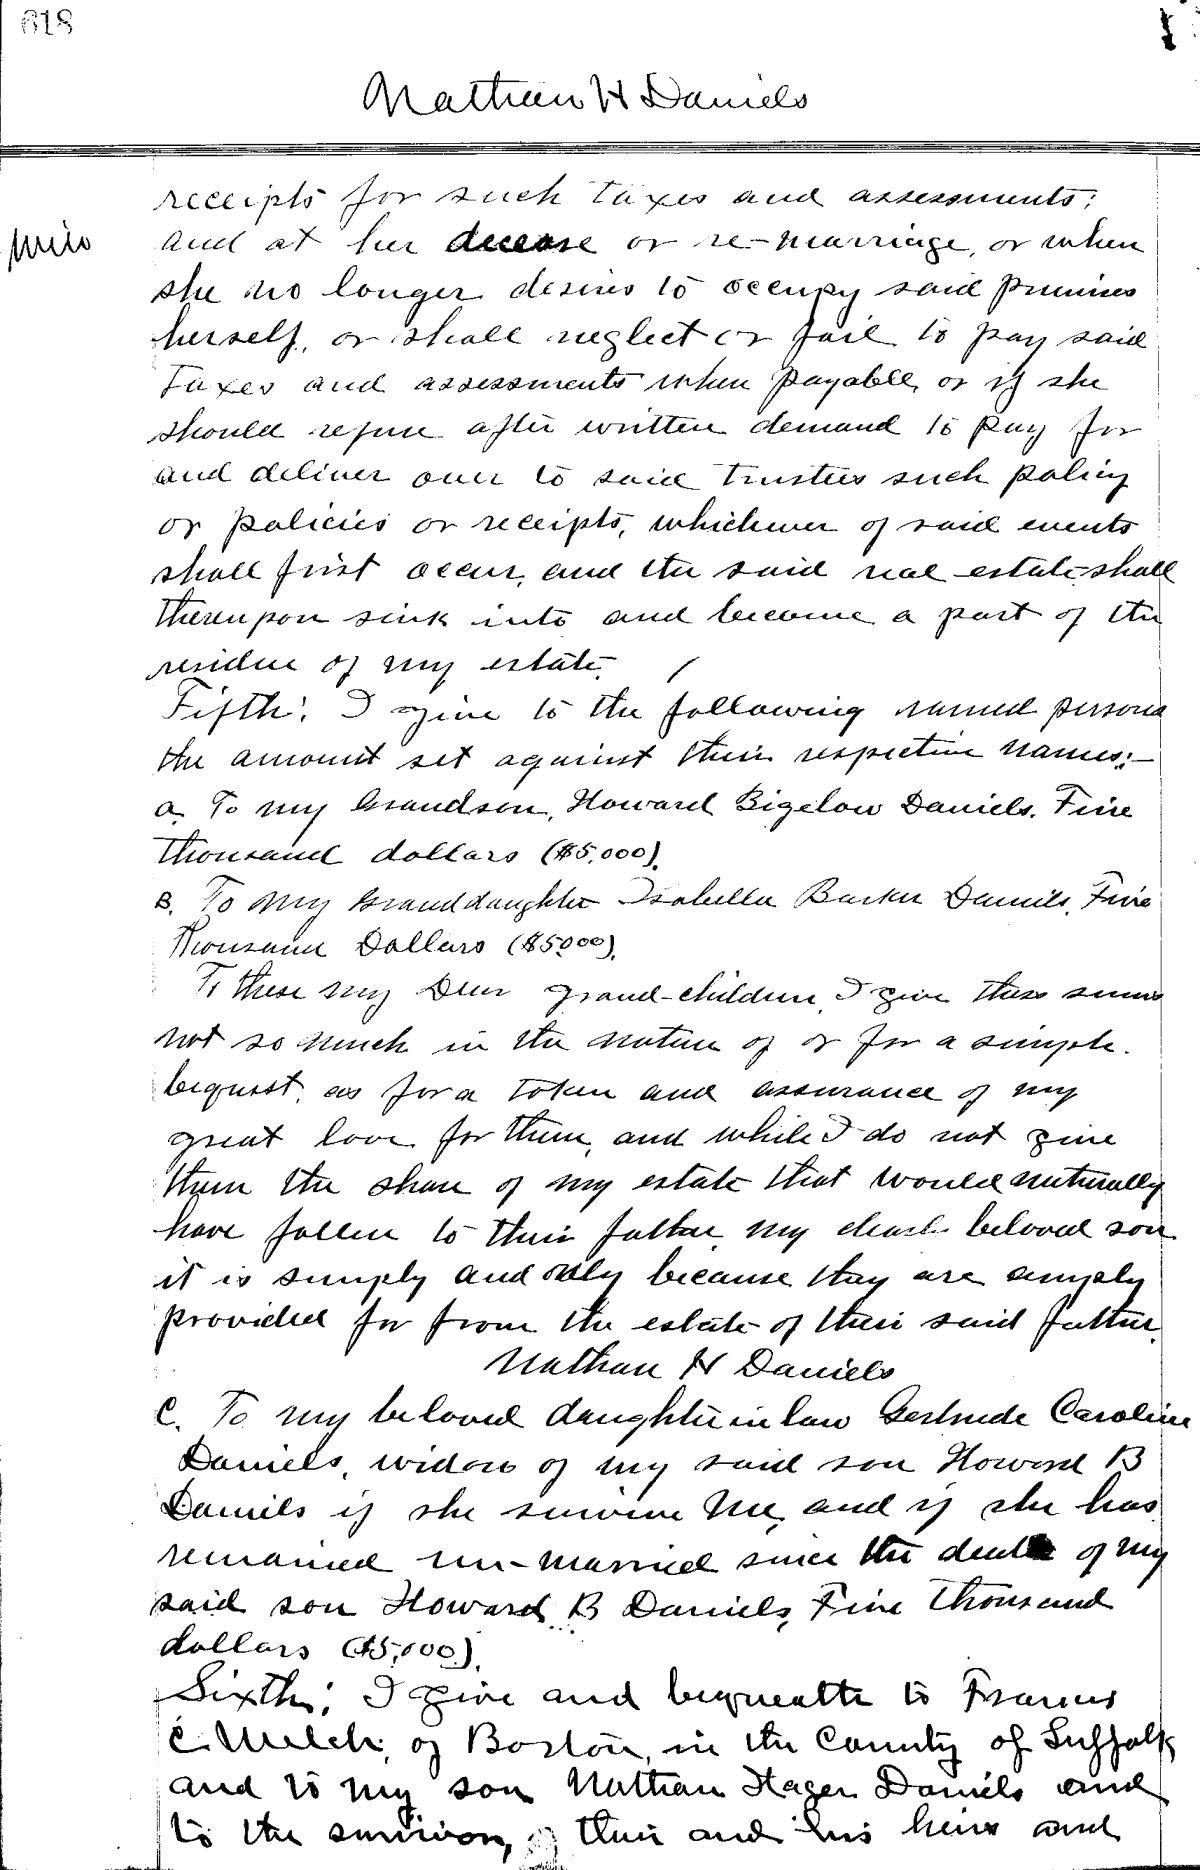 618
Nathan H Daniels
receipts for such taxes and assessments;
and at her decease or re-marriage, or when
she no longer desires to occupy said premises
herself, or shall neglect or fail to pay said
taxes and assessments when payable, or if she
should refuse after written demand to pay for
and deliver over to said trustees such policy
or policies or receipts, whichever of said events
shall first occur, and the said real estate shall
thereupon sink into and become a part of the
residue of my estate.
Fifth: I give to the following named persons
the amount set against their respective names:—
a. To my Grandson, Howard Bigelow Daniels. Five
thousand dollars ($5,000).
B. To my Granddaughter Isabella Barker Daniels, Five
Thousand Dollars ($5000).
To these my Dear grand-children, I give these sums
not so much in the nature of or for a simple
bequest, as for a token and assurance of my
great love for them, and while I do not give
them the share of my estate that would naturally
have fallen to their father, my dearly beloved son
it is simply and only because they are amply
provided for from the estate of their said father.
Nathan H Daniels
C. To my beloved daughter in law Gertrude Caroline
Daniels, widow of my said son Howard B
Daniels if she survive me, and if she has
remained un-married since the death of my
said son Howard B Daniels, Five thousand
dollars ($5,000).
Sixth: I give and bequeath to Francis
C. Welch, of Boston, in the County of Suffolk
and to my son Nathan Hager Daniels and
to the survivor, of them and his heirs and